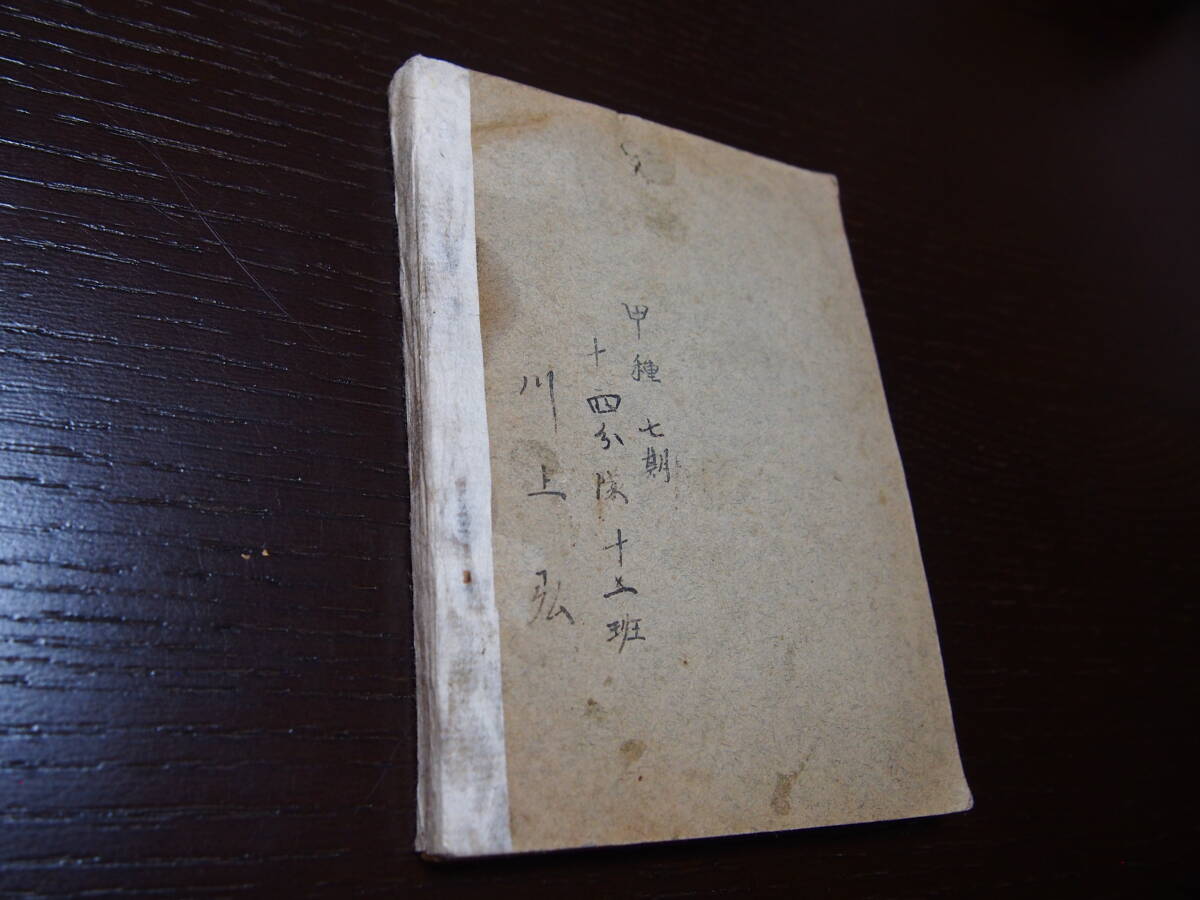 甲種七期
十四分隊十五班
川上弘